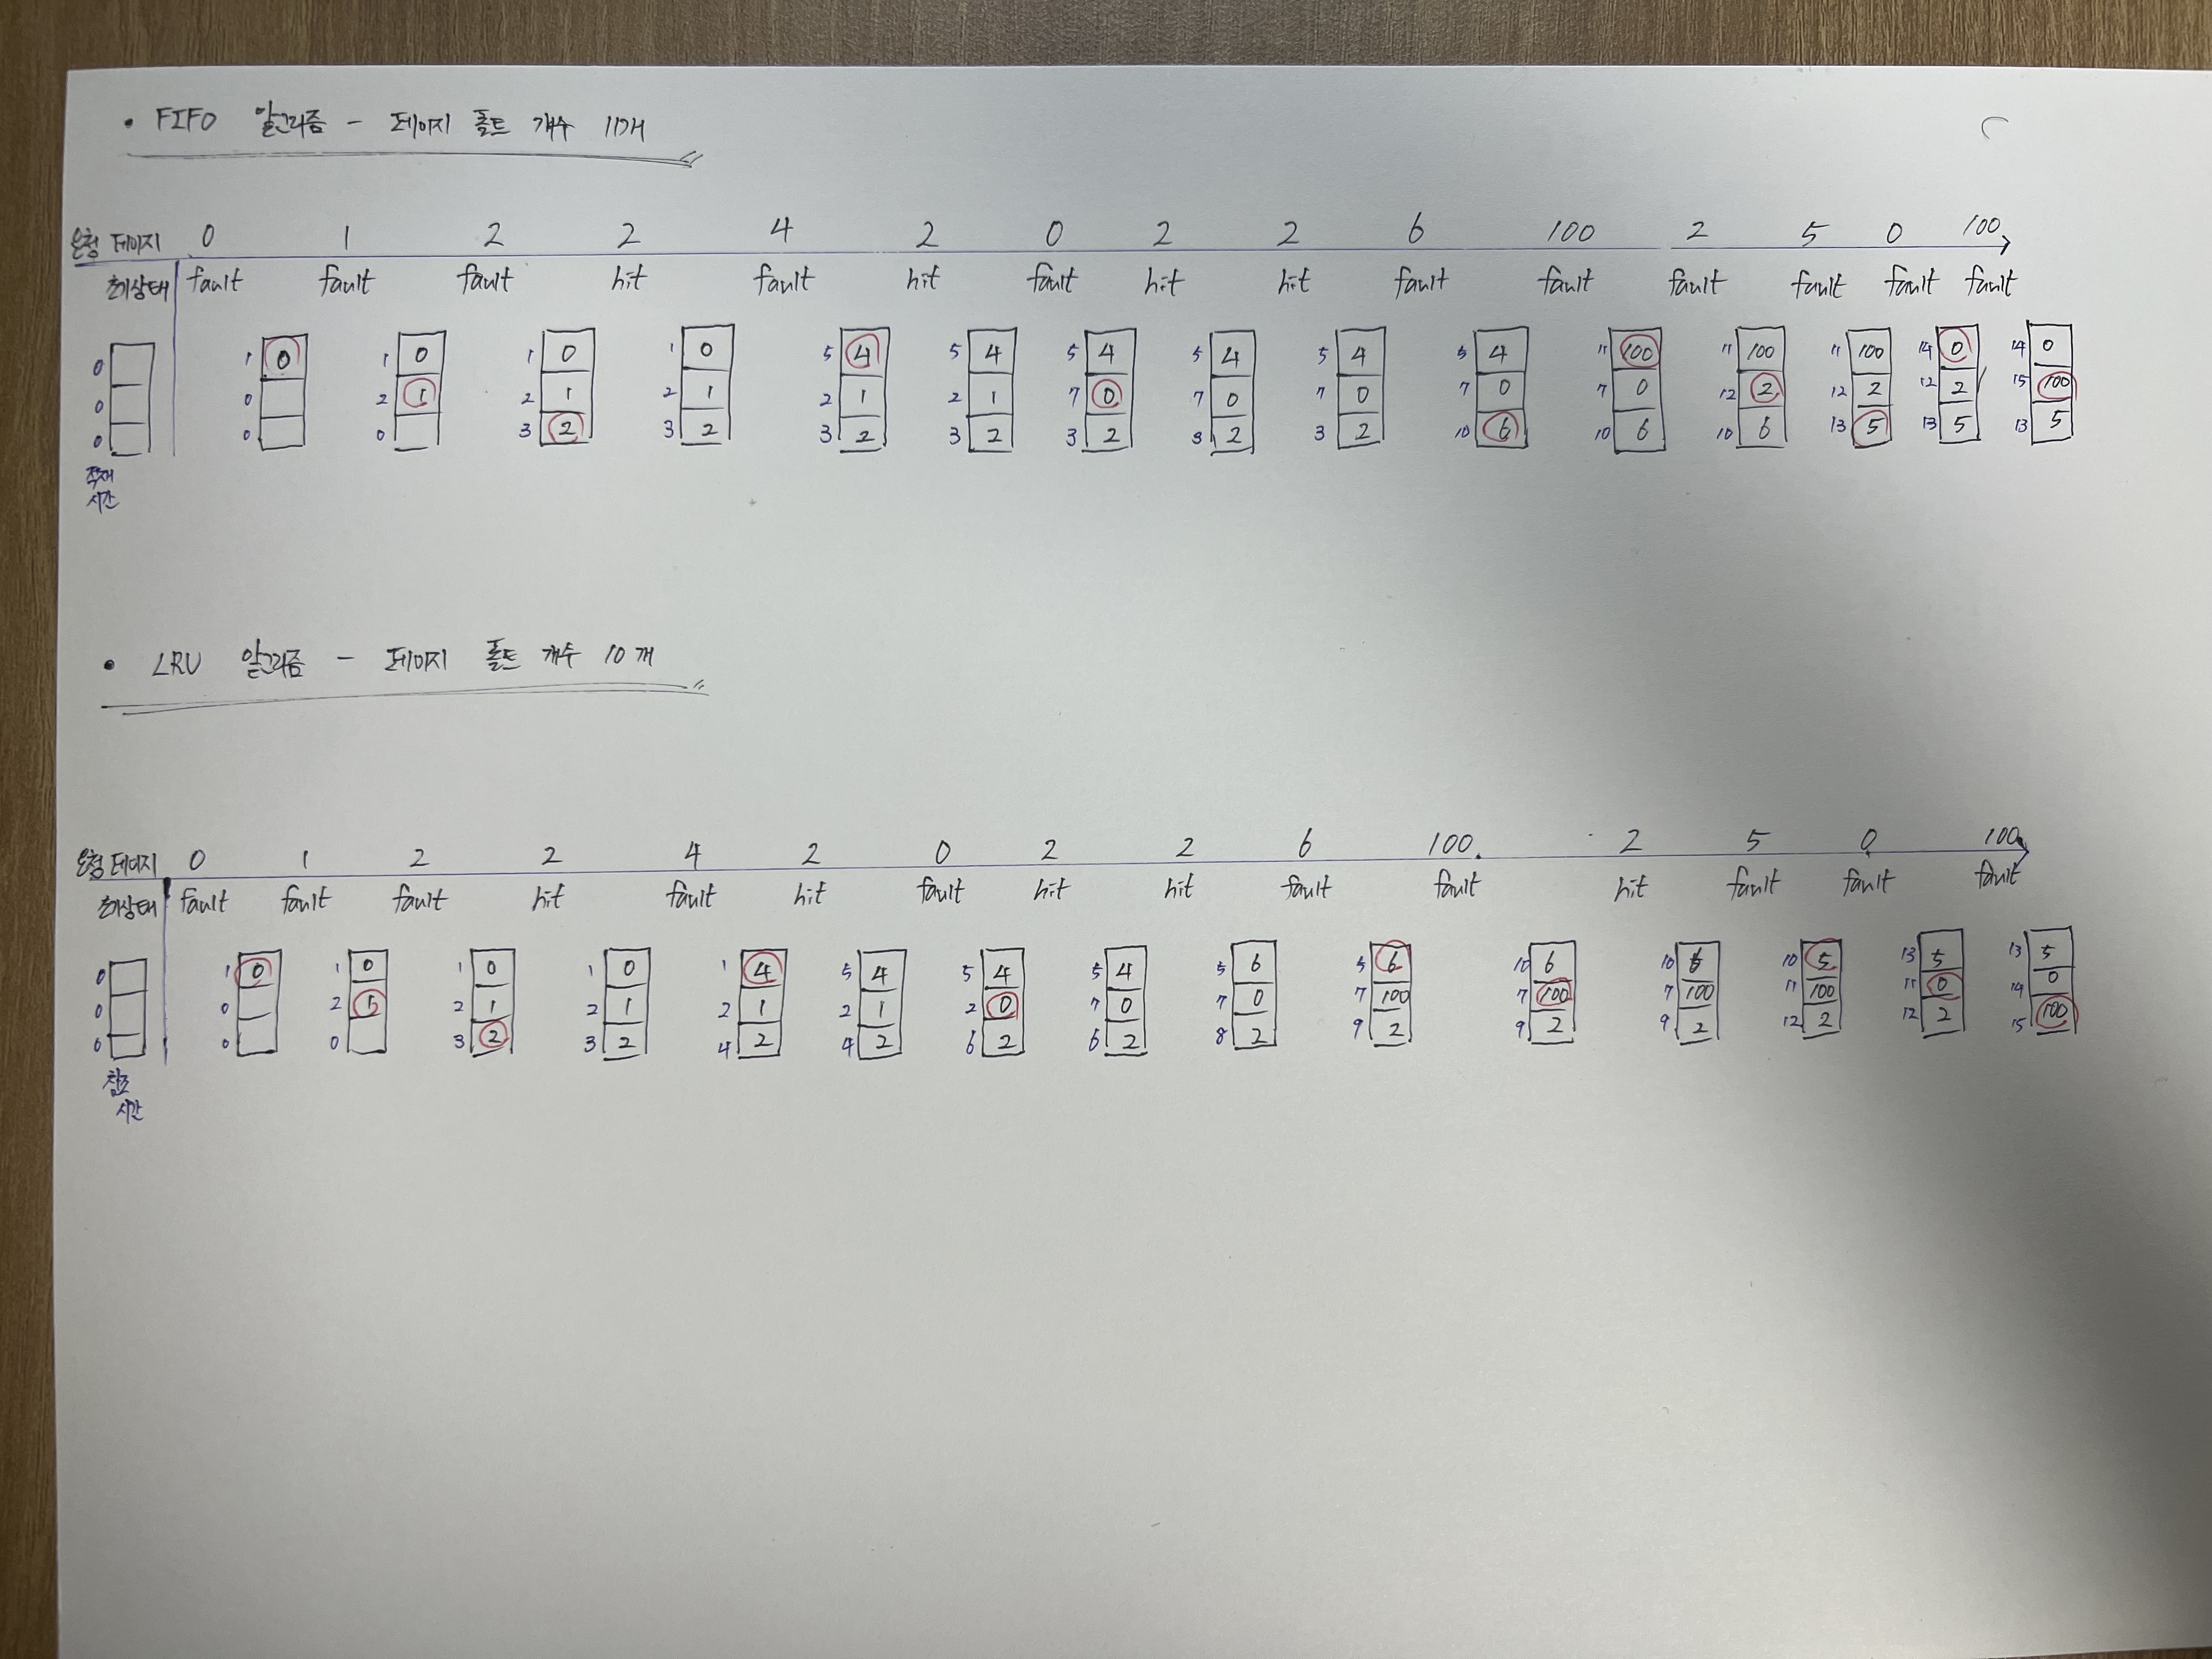 • FIFO 알고리즘 - 페이지 폴트 개수 11개
요청 페이지 0 1 2 2 4 2 0 2 2 6 100 2 5 0 100
fault fault fault hit fault hit fault hit hit fault fault fault fault fault fault
0 1 0 1 0 1 0 1 0 5 4 5 4 5 4 5 4 5 4 5 4 11 100 11 100 11 100 14 0 14 0
0 0 2 1 2 1 2 1 2 1 2 1 7 0 7 0 7 0 7 0 7 0 12 2 12 2 12 2 15 100
0 0 0 3 2 3 2 3 2 3 2 3 2 3 2 3 2 10 6 10 6 10 6 13 5 13 5 13 5
적재
시간
• LRU 알고리즘 - 페이지 폴트 개수 10개
요청 페이지 0 1 2 2 4 2 0 2 2 6 100 2 5 0 100
fault fault fault hit fault hit fault hit hit fault fault hit fault fault fault
0 1 0 1 0 1 0 1 0 1 4 5 4 5 4 5 4 5 6 5 6 10 6 10 6 10 5 13 5 13 5
0 0 2 1 2 1 2 1 2 1 2 1 2 0 7 0 7 0 7 100 7 100 7 100 11 100 11 0 14 0
0 0 0 3 2 3 2 4 2 4 2 6 2 6 2 8 2 9 2 9 2 9 2 12 2 12 2 15 100
참조
시간